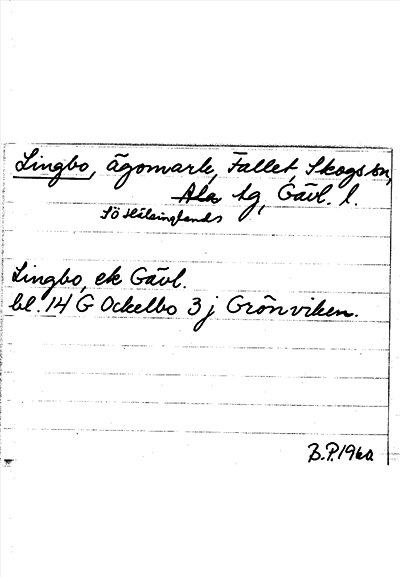 Lingbo, ägomark, Fallet, Skogs sn,
Ala tg, Gävl. l.
Sö Hälsinglands
Lingbo, ek Gävl.
bl. 14 G Ockelbo 3 j Grönviken.
B.P. 1960